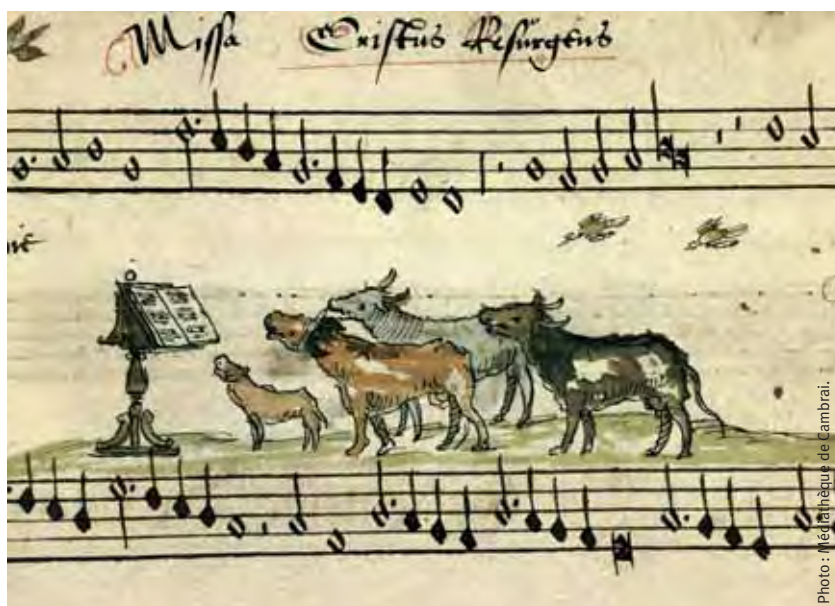 Missa Cristus Resurgens
Photo : Médiathèque de Cambrai.